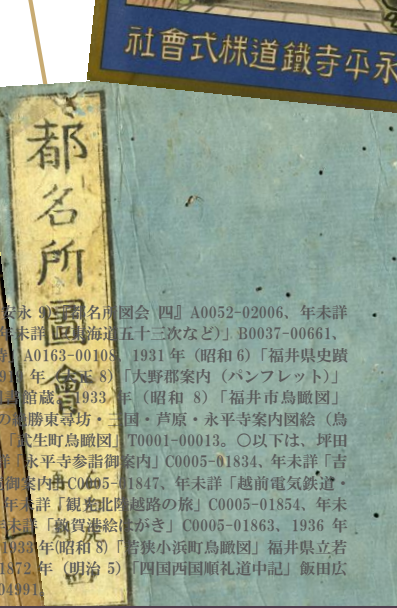 社會式株道鐵寺平永
都名所圖會
安永 9）『都名所図会 四』A0052-02006、年未詳
年未詳「（東海道五十三次など）」B0037-00661、
A0163-00108、1931 年（昭和 6）「福井県史蹟
年（大正 8）「大野郡案内（パンフレット）」
館蔵、1933 年（昭和 8）「福井市鳥瞰図」
の絶勝東尋坊・三国・芦原・永平寺案内図絵（鳥
「武生町鳥瞰図」T0001-00013。○以下は、坪田
詳「永平寺参詣御案内」C0005-01834、年未詳「吉
御案内」C0005-01847、年未詳「越前電気鉄道・
年未詳「観光北陸越路の旅」C0005-01854、年未
年未詳「敦賀港絵はがき」C0005-01863、1936 年
1933 年(昭和 8)「若狭小浜町鳥瞰図」福井県立若
1872 年（明治 5）「四国西国順礼道中記」飯田広
04991。